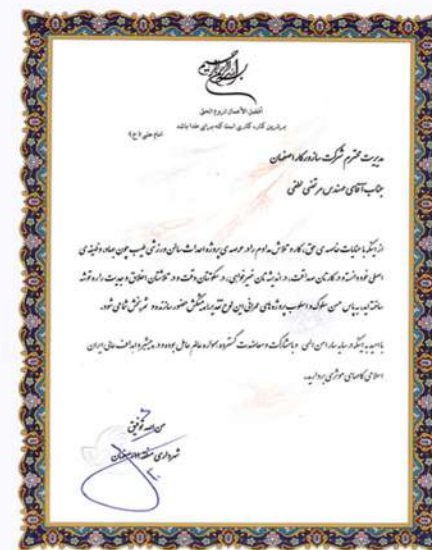 بسم الله الرحمن الرحیم
افضل الأعمال لروج الحق
برترین کار، کاری است که برای خدا باشد
امام علی (ع)
مدیریت محترم شرکت سازه ورز کار اصفهان
جناب آقای مهندس مرتضی لطفی
از اینکه با عنایات خاصه ی حق، کار و تلاش مداوم را در عرصه ی پروژه احداث سالن ورزشی طیب چون جهاد وظیفه ی
اصلی خود دانسته و در کارتان صداقت، در اندیشه تان خیرخواهی، در سکوتتان دقت و در تلاشتان اخلاق و جدیت را ره توشه
ساخته اید به پاس حسن سلوک و اسلوب پروژه های عمرانی این لوح تقدیر پیشکش حضور سازنده و ثمربخش شما می شود.
با امید به اینکه در سایه سار امن الهی و با مشارکت و معاضدت گسترده همواره عالم عامل بوده و در پیشبرد اهداف عالی ایران
اسلامی گامهای موثری بردارید.
من الله توفیق
شهرداری منطقه اصفهان